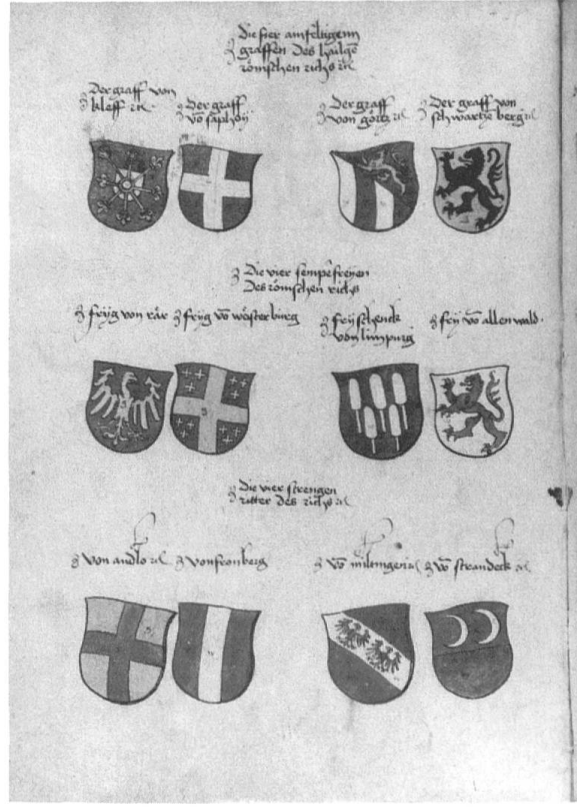 Die fier ainfeltigenn
graffen des hailgē
römschen richs
Der graff von
kleff
Der graff
vō saphoy
Der graff
von görtz
Der graff von
schwartze berg
Die vier sempefreyen
Des römschen richs
fryg von
fryg vō westerburg
fry schenck
von limpurg
fry vō allenwald
Die vier strengen
ritter des richs
von andlo
von fronberg
vō
vō strandeck